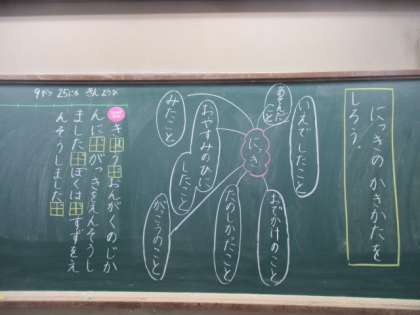 にっきの かきかたを
しろう。
いえでしたこと
あそんだ
こと
おでかけのこと
にっき
たのしかったこと
おやすみのひに
したこと
みたこと
がっこうのこと
9がつ 25にち きんようび
きょう、おんがくのじか
んに、がっきをえんそうし
ました。ぼくは、すずをえ
んそうしました。